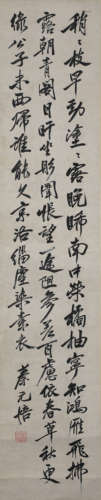 稍稍枝早勁塗塗露晚晞南中榮橘柚寧知鴻雁飛拂
霧朝青閣日旰坐彤闈悵望一途阻參差百慮依春草秋更
綠公子未西歸誰能久京洛緇塵染素衣 蔡元培